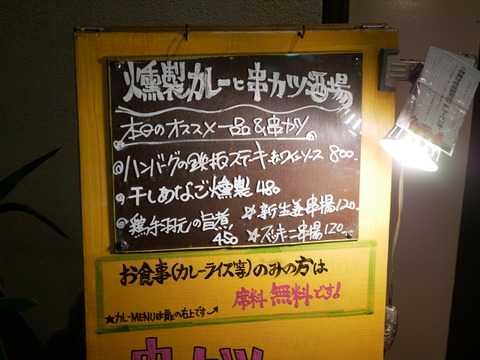 燻製カレーと串カツ酒場
本日のオススメ一品&串カツ
◎ハンバーグの鉄板ステーキ赤ワインソース 800.
◎干しあなご燻製 480
◎鶏手羽元の旨煮 450
☆新生姜串揚 120.
☆ズッキーニ串揚 120.
お食事(カレーライス等)のみの方は
席料 無料です!
★カレーMENUは扉の右上です
串カツ